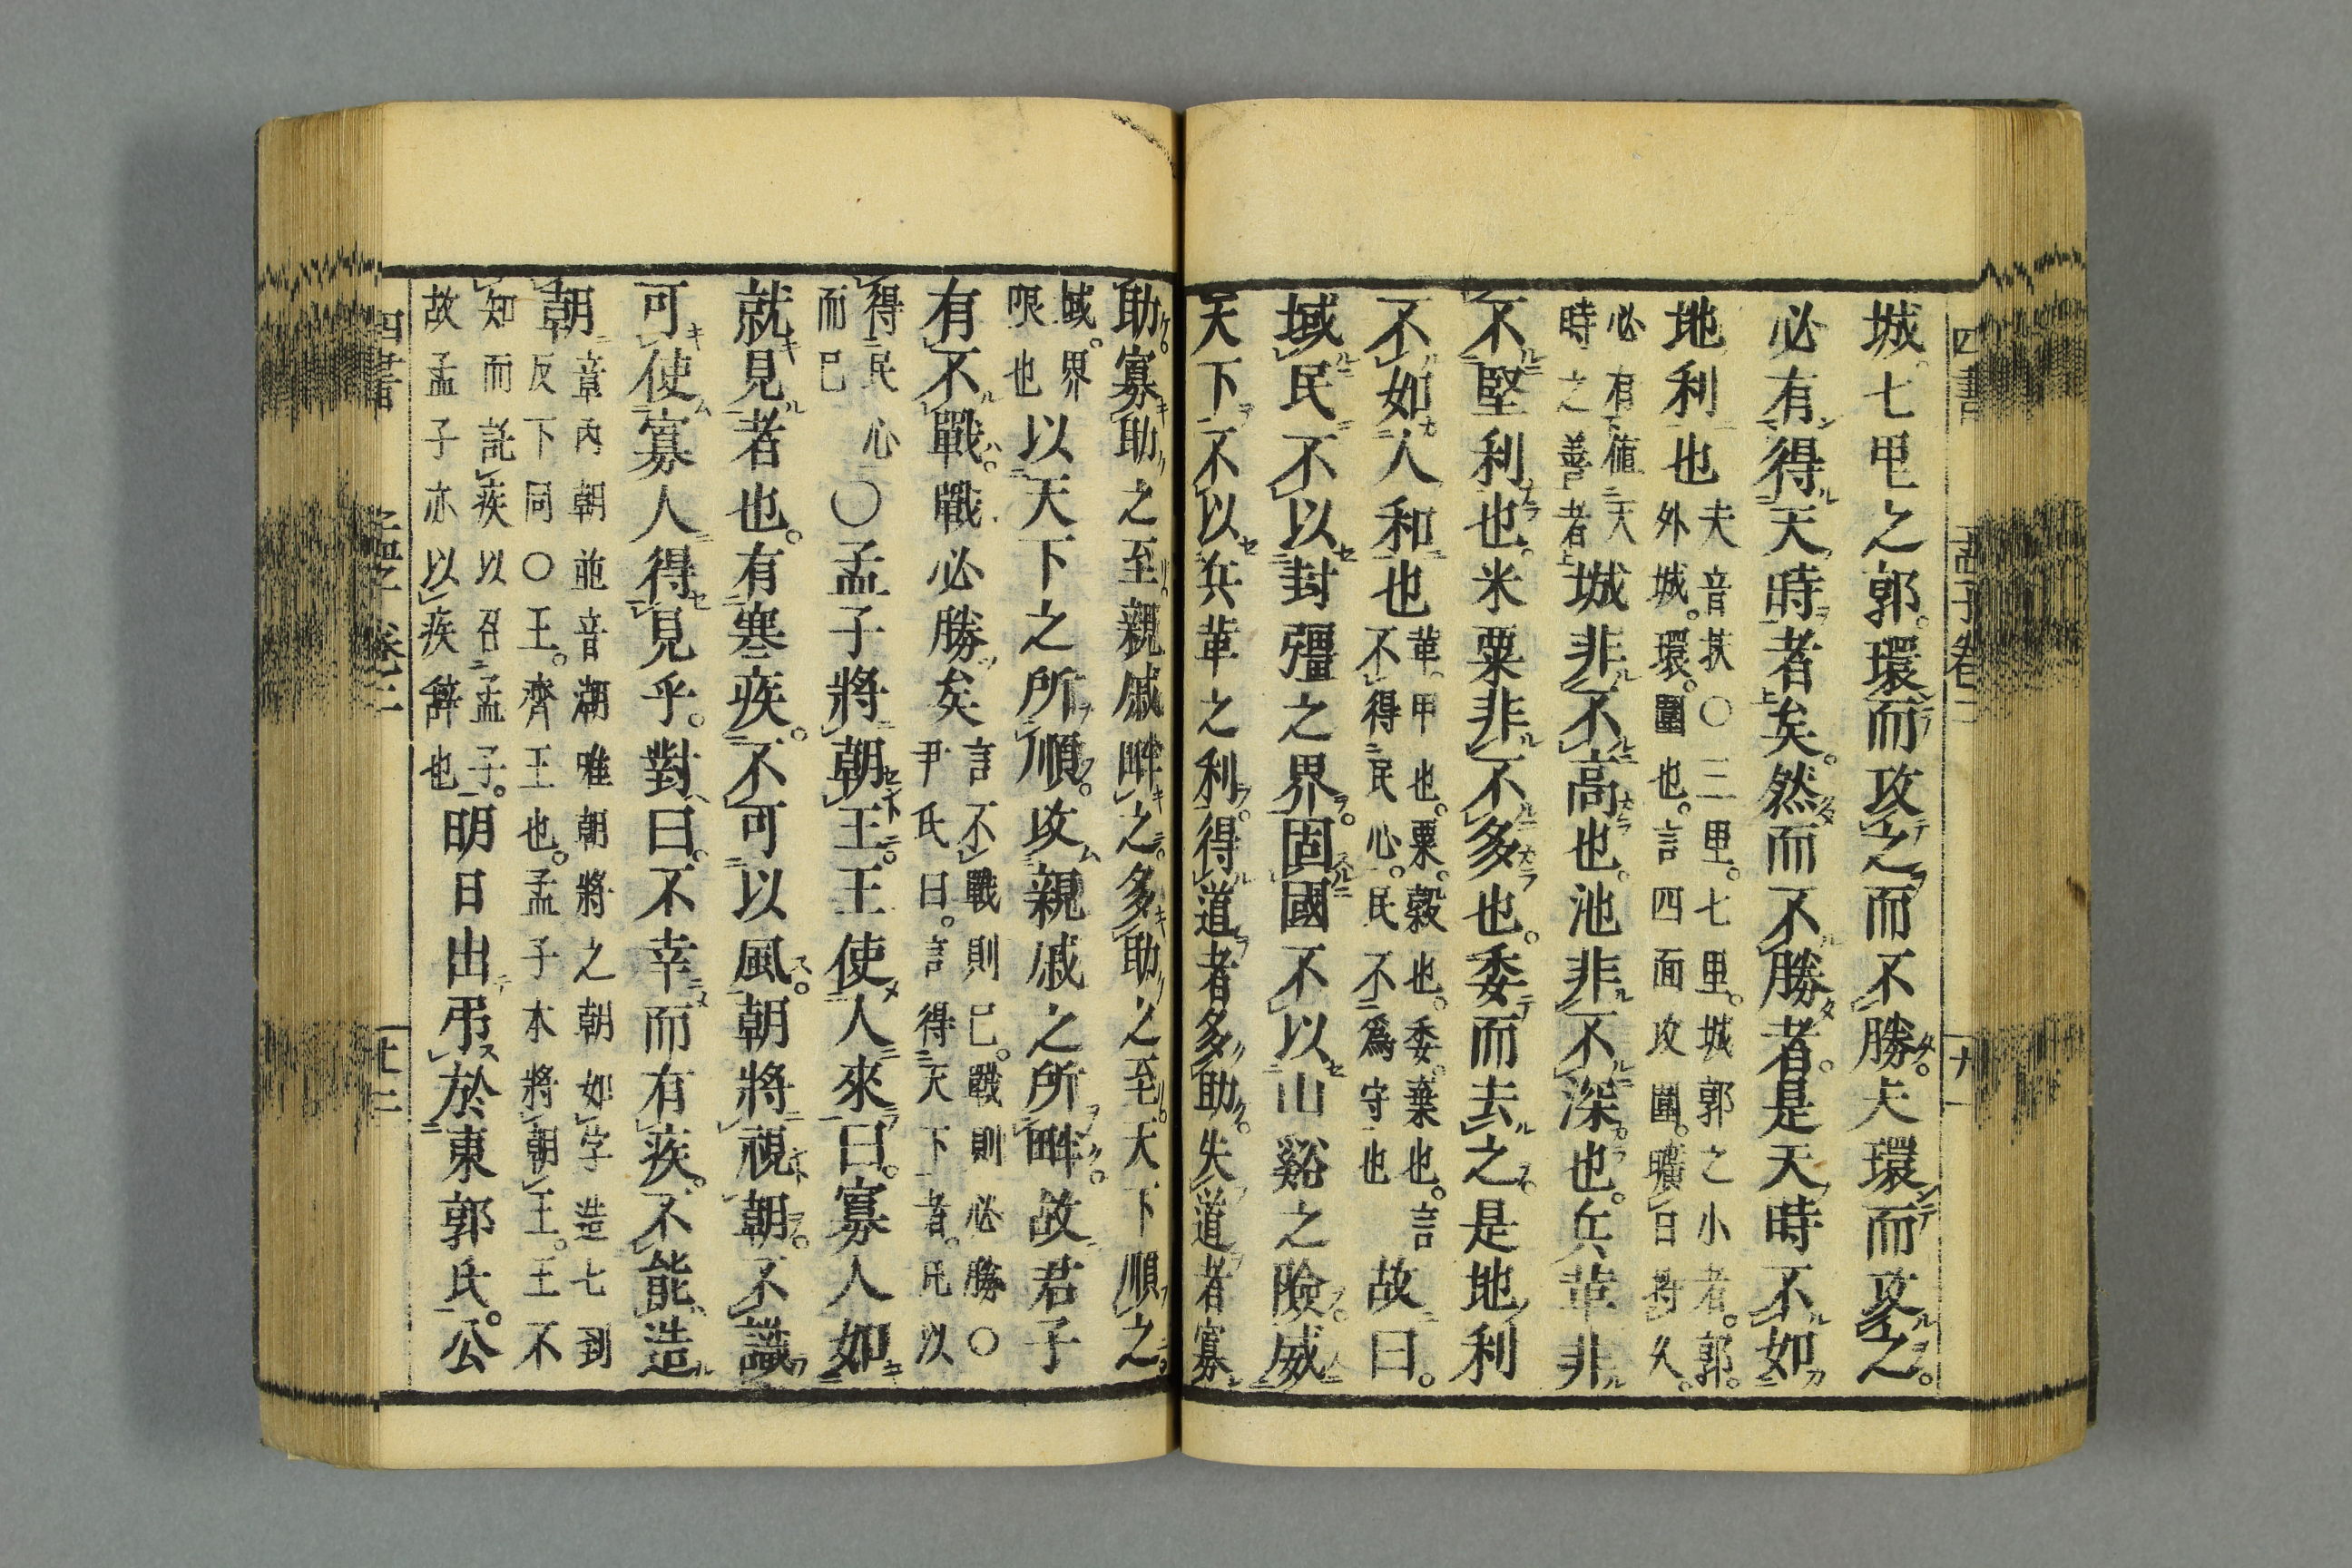 四書
孟子卷二
城七里之郭。環而攻之而不勝。夫環而攻之。
必有得天時者矣。然而不勝者。是天時不如
地利也
夫音扶○三里。七里。城郭之小者。郭。
外城。環。圍也。言四面攻圍。曠日持久。
必有値天
時之善者
城非不高也。池非不深也。兵革非
不堅利也。米粟非不多也。委而去之。是地利
不如人和也
革。甲也。粟。穀也。委。棄也。言
不得民心。民不爲守也
故曰。
域民不以封疆之界。固國不以山谿之險。威
天下不以兵革之利。得道者多助。失道者寡
助。寡助之至。親戚畔之。多助之至。天下順之。
域。界
限也
以天下之所順。攻親戚之所畔。故君子
有不戰。戰必勝矣
言不戰則已。戰則必勝○
尹氏曰。言得天下者。凡以
得民心
而已
○孟子將朝王。王使人來曰。寡人如
就見者也。有寒疾。不可以風。朝將視朝。不識
可使寡人得見乎。對曰。不幸而有疾。不能造
朝
章內朝並音潮唯朝將之朝如字造七到
反下同○王。齊王也。孟子本將朝王。王不
知而託疾以召孟子。
故孟子亦以疾辭也
明日出弔於東郭氏。公
四書
孟子卷二
廿二